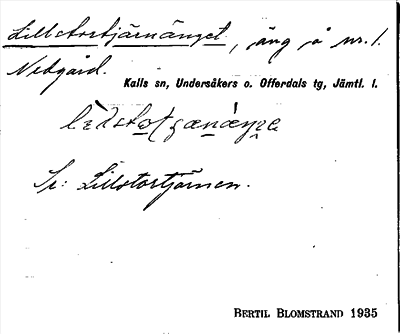 Lillstortjärnänget, äng å nr. 1.
Nedgård.
Kalls sn, Undersåkers o. Offerdals tg, Jämtl. l.
Se: Lillstortjärnen.
BERTIL BLOMSTRAND 1935